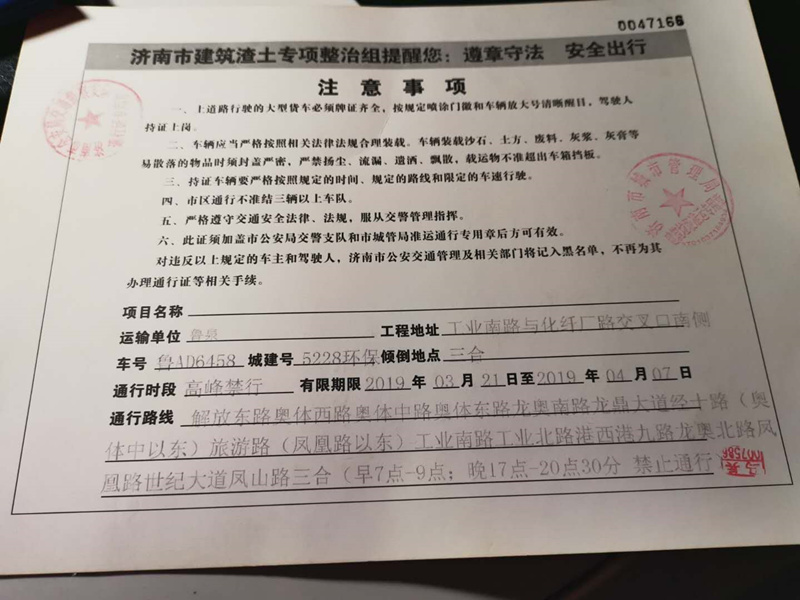 0047166
济南市建筑渣土专项整治组提醒您：遵章守法 安全出行
注意事项
一、上道路行驶的大型货车必须牌证齐全，按规定喷涂门徽和车辆放大号清晰醒目，驾驶人
持证上岗。
二、车辆应当严格按照相关法律法规合理装载。车辆装载沙石、土方、废料、灰浆、灰膏等
易散落的物品时须封盖严密，严禁扬尘、流漏、遗洒、飘散，载运物不准超出车箱挡板。
三、持证车辆要严格按照规定的时间、规定的路线和限定的车速行驶。
四、市区通行不准结三辆以上车队。
五、严格遵守交通安全法律、法规，服从交警管理指挥。
六、此证须加盖市公安局交警支队和市城管局准运通行专用章后方可有效。
对违反以上规定的车主和驾驶人，济南市公安交通管理及相关部门将记入黑名单，不再为其
办理通行证等相关手续。
项目名称
运输单位 鲁泉 工程地址 工业南路与化纤厂路交叉口南侧
车号 鲁AD6458 城建号 5228环保 倾倒地点 三合
通行时段 高峰禁行 有限期限 2019 年 03 月 21 日至 2019 年 04 月 07 日
通行路线 解放东路奥体西路奥体中路奥体东路龙奥南路龙鼎大道经十路（奥
体中以东）旅游路（凤凰路以东）工业南路工业北路港西港九路龙奥北路凤
凰路世纪大道凤山路三合（早7点-9点；晚17点-20点30分 禁止通行
济南市城市管理局